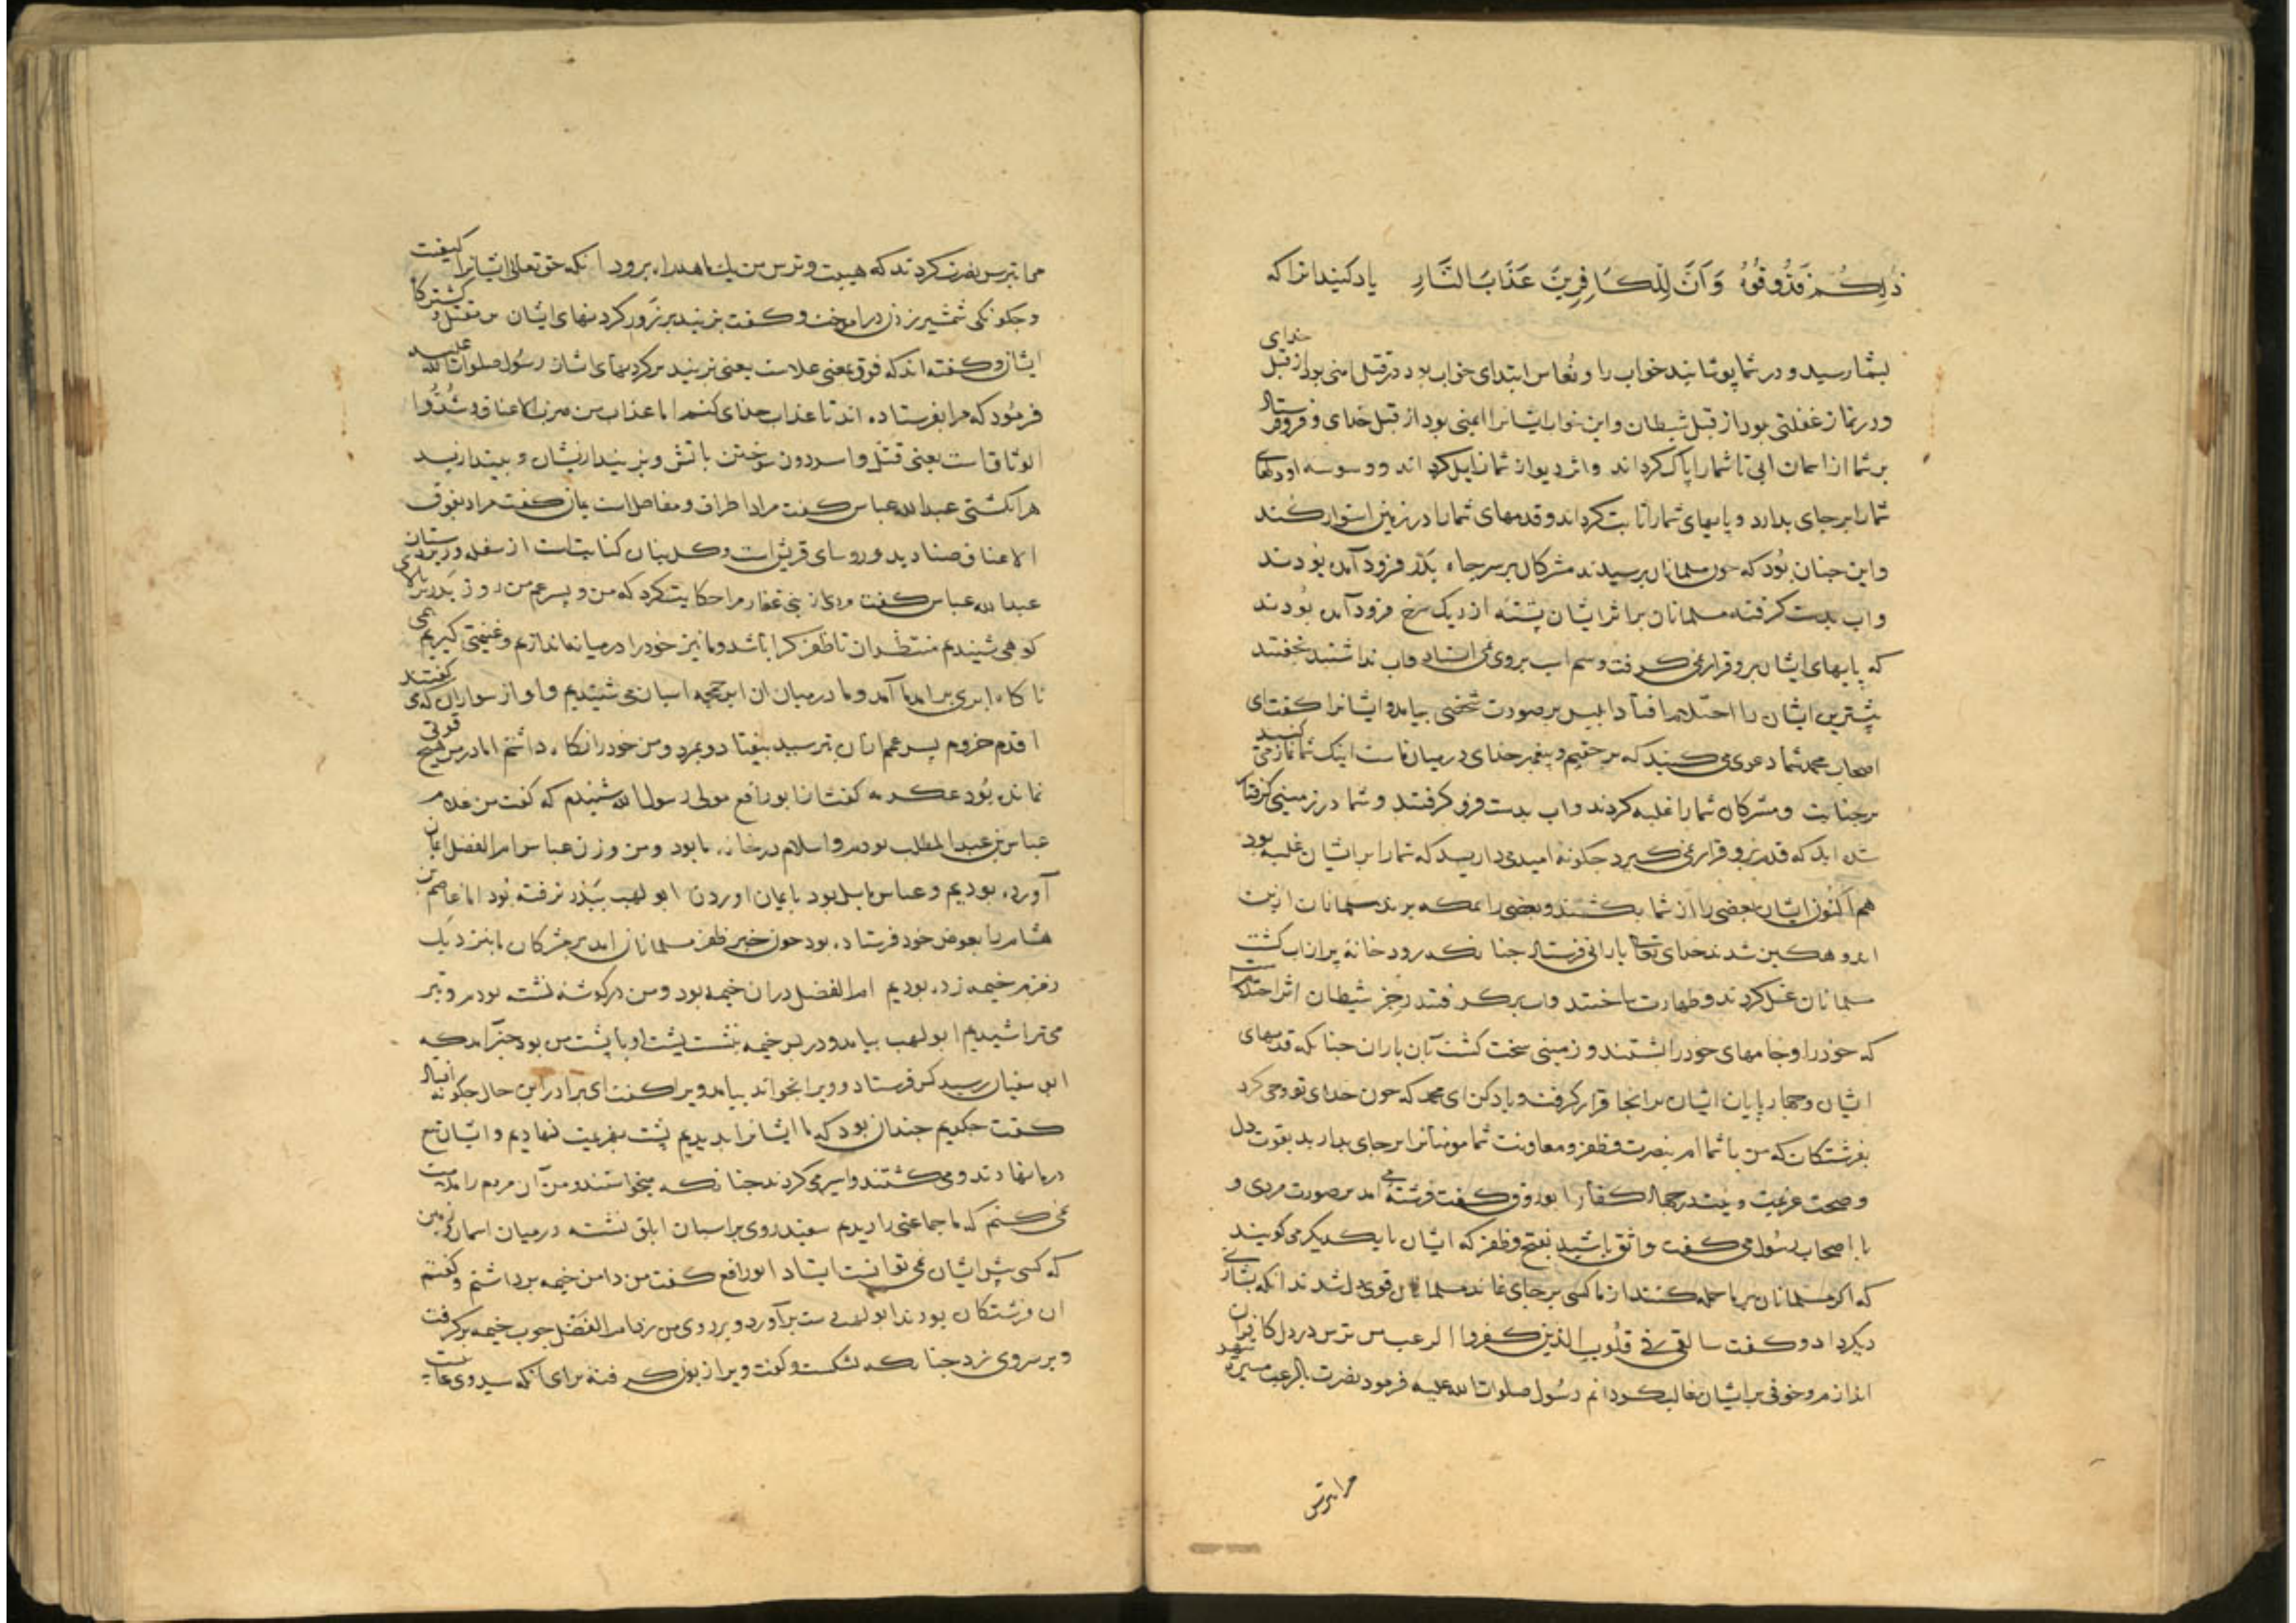 ذٰلِكُمْ فَذُوقُوهُ وَاَنَّ لِلْكَافِرِينَ عَذَابَ النَّارِ یاد کنید انرا که خدای
بشما رسید و در شما پوشانید خواب را و نُعاس ابتدای خواب بود در قتل امنی بود از قبل
و در نماز غفلتی بود از قبل شیطان و این خواب ایشانرا ایمنی بود از قبل خدای و فرو فرستاد
بر شما از اسمان ابی تا شما را پاک کرداند و اثر دیو از شما زایل کرداند و وسوسه او دلهای
شما را بر جای بدارد و پایهای شما را ثابت کرداند و قدمهای شما را در زمین استوار کند
و این جنان بُود که جون مسلمانان برسیدند مشرکان بر سر جاه بَدر فرود آمده بُودند
و اب بدست کرفته مسلمانان بر اثر ایشان پشته از ریک سرخ فرود آمده بُودند
که پایهای ایشان برو قرار نمی کرفت و سم اسب بروی نمی استاد و اب نداشتند بخفتند
بیشترین ایشان را احتلام افتاد ابلیس بر صورت شخصی بیامد و ایشانرا کفت ای
اصحاب محمد شما دعوی می کنید که بر حقیم و پیغمبر خدای در میان ماست اینک شما نماز می کنید
بر جنابت و مشرکان شما را غلبه کردند و اب بدست فرو کرفتند و شما در زمینی کرفتار
شده اید که قدم برو قرار نمی کیرد جکونه امید می دارید که شما را بر ایشان غلبه بود
هم اکنون ایشان بعضی را از شما بکشتند و بعضی را بمکه برند مسلمانان ازین
اندوهکین شدند خدای تعالی بارانی فرستاد جنانکه رودخانه پر از اب کشت
مسلمانان غسل کردند و طهارت ساختند و اب برکرفتند رجز شیطان اثر احتلام است
که خود را و جامهای خود را بشستند و زمینی سخت کشت بآن باران جنانکه قدمهای
ایشان و جهار پایان ایشان بر انجا قرار کرفت و یاد کن ای محمد که جون خدای تعو وحی کرد
بفرشتکان که من با شما ام بنصرت و ظفر و معاونت شما مومنانرا بر جای بدارید بقوت دل
و صحت عزیمت و نیت در جهاد کفار ابو روق کفت فرشته می امد بر صورت مردی و
با اصحاب رسُول می کفت واثق باشید بفتح و ظفر که ایشان با یکدیکر می کویند
که اکر مسلمانان بر ما حمله کنند از ما کسی بر جای نماند مسلمانان قوی دل شدند انکه بشارتی
دیکر داد و کفت سالقی فی قلُوبِ الذین کفروا الرعب من ترس در دل کافران
اندازم و خوفی بر ایشان غالب کردانم رسُول صلوات الله علیه فرمود نصرت بالرعب مسیرة شهر
مرا بترس
مرا بترس نصرت کردند که هیبت و ترس من یک ماهه راه برود انکه حق تعالی ایشانرا کیفیت
و جکونکی شمشیر زدن در اموخت و کفت بزنید بر زَور کردنهای ایشان
ایشان و کفته اند که فوق بمعنی علاست یعنی بزنید بر کردنهای ایشان رسُول صلوات الله علیه
فرمُود که مرا بفرستاده اند تا عذاب خدای کنم اما عذاب من ضرب الاعناق و شُدُّوا
الوثاق است یعنی قتل و اسر دون سوختن باتش و بزنید از ایشان و بیندازید
هر انکشتی عبدالله عباس کفت مراد اطراف و مفاصل است یمان کفت مراد بفوق
الاعناق صنادید و روسای قریش است و کل بنان کنایت است از سفله و زیردستان
عبدالله عباس کفت مردی از بنی غفار مرا حکایت کرد که من و پسر عم من روز بَدر بر بالای
کوهی شدیم منتظر ان تا ظفر کرا باشد و ما نیز خود را در میانه اندازیم و غنیمتی کیریم
ناکاه ابری برامد تا آمد و ما در میان ان ابر حمحمه اسبان می شنیدیم و اواز سواران که می کفتند
اقدم حیزوم پسر عمم ازان بترسید بیفتاد و بمرد و من خود را نکاه داشتم اما در من هیچ قوتی
نمانده بُود عکرمه کفت از ابو رافع مولی رسول الله شنیدم که کفت من غلام
عباس بن عبدالمطلب بودم و اسلام در خانه ما بود و من و زن عباس ام الفضل ایمان
آورده بودیم و عباس مایل بود بایمان اوردن ابو لهب ببَدر نرفته بُود اما عاصم بن
هشام را بعوض خود فرستاده بود جون خبر ظفر مسلمانان امد بر مشرکان ما بنزدیک
زمزم خیمه زده بودیم ام الفضل دران خیمه بود و من در کوشه نشسته بودم و تیر
می تراشیدم ابو لهب بیامد و در پس خیمه بنشست پشت او با پشت من بود خبر آمد که
ابو سفیان رسید کس فرستاد و ویرا بخواند بیامد ویرا کفت ای برادر این حال جکونه افتاد
کفت جکویم جندان بود که ما ایشانرا بدیدیم پشت بهزیمت نهادیم و ایشان تیغ
در ما نهادند و می کشتند و اسیر می کردند جنانکه میخواستند و من آن مردم را ملامت
نمی کنم که ما جماعتی را دیدیم سفید روی بر اسبان ابلق نشسته در میان اسمان و زمین
که کسی پیش ایشان نمی توانست ایستاد ابو رافع کفت من دامن خیمه برداشتم و کفتم
ان فرشتکان بودند ابو لهب دست برآورد و بر روی من زد ام الفضل جوب خیمه برکرفت
و بر سر وی زد جنانکه بشکست و کفت ویرا زبون کرفته برای انکه سید وی غایب